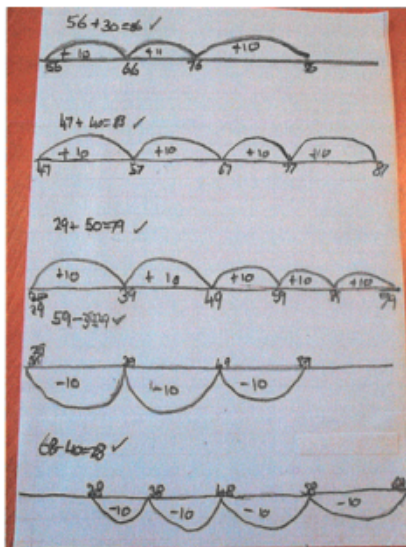 56+30=86 ✓
+10 +10
56 66 76
47+40=
+10 +10 +10 +10
47 57 67 77 87
29+50=79 ✓
+10 +10 +10 +10 +10
29 39 49 59 79
59- ✓
49
-10 -10 -10
68-40=28 ✓
28 38 48 58
-10 -10 -10 -10